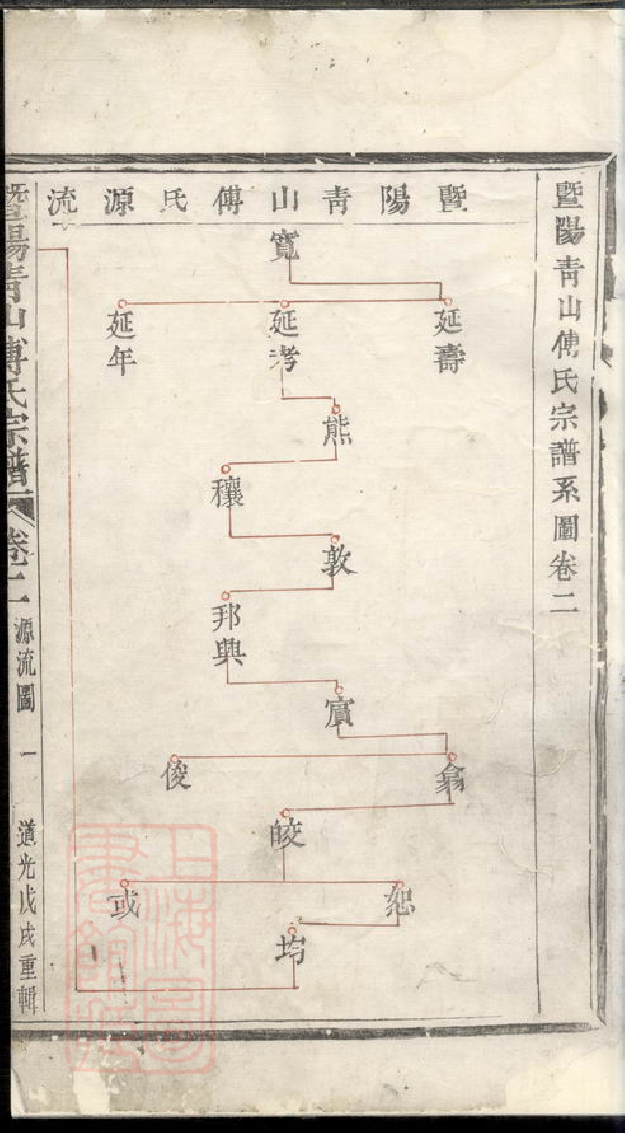 暨陽青山傅氏宗譜系圖卷二
暨陽青山傅氏源流
寬
延壽
延考
延年
熊
穰
敦
邦興
賓
翕
俊
皎
恕
或
均
暨陽青山傅氏宗譜 卷二 源流圖 一 道光戊戌重輯
上海圖書館藏